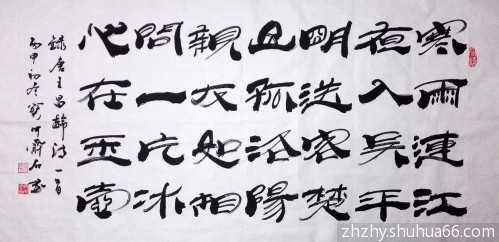 寒雨連江
夜入吳平
明送客楚
山孤洛陽
親友如相
問一片冰
心在玉壺
錄唐王昌齡詩一首
丙申初冬 石書
zhzhy.shuhua66.com